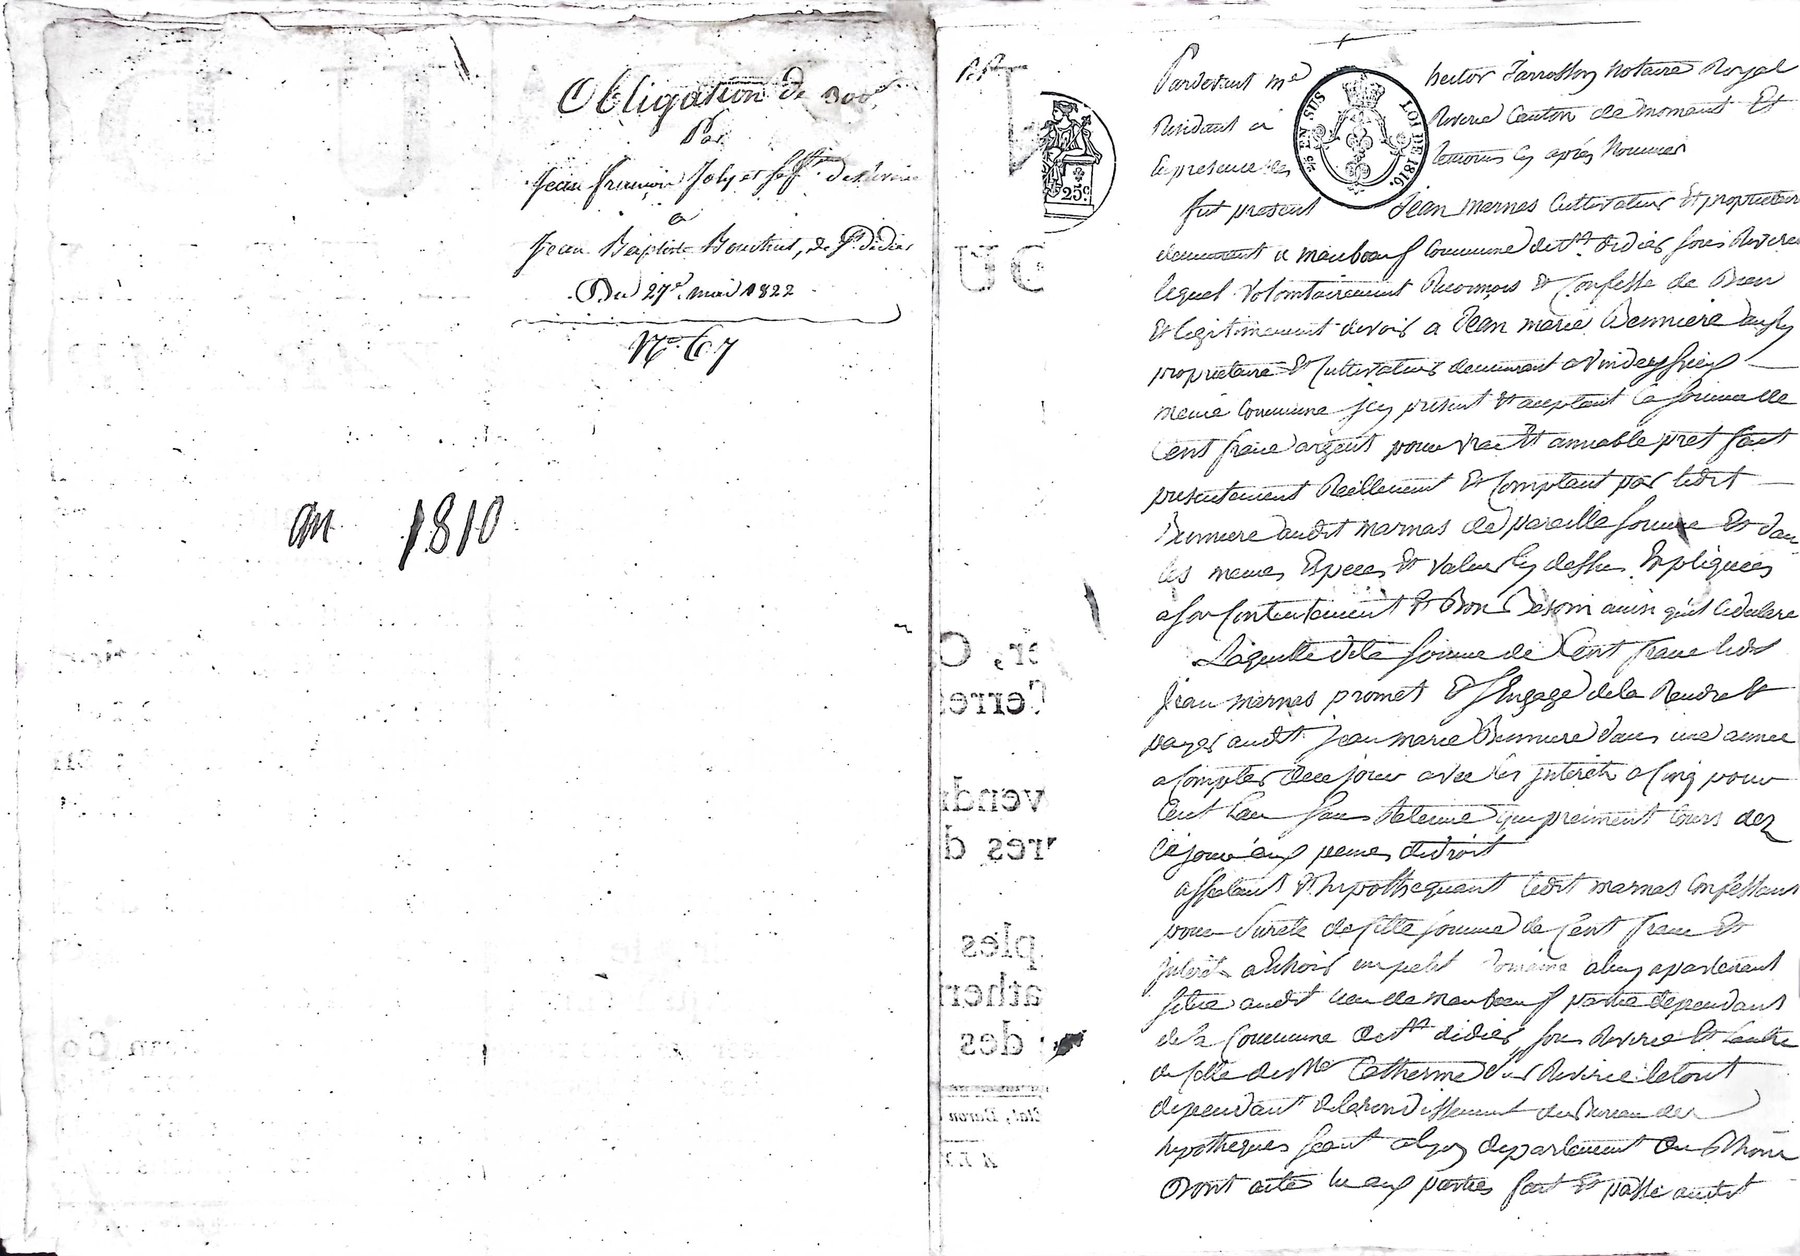 Obligation de 300f.
Par
Jean françois Joly et sa ff.e de Riverie
a
Jean Baptiste Bouchut, de St. didier
Du 27e. mai 1822
No. 67
an 1810
Pardevant me hector Jarrosson Notaire Royal
Résidant a Riverie Canton de mornant Et
En presence des temoins cy après Nommés
EN SUS
LOI DE 1816.
25c
fut present Jean marnas Cultivateur Et propriétaire
demeurant a manboeuf Commune de St. didier sous Riverie
lequel volontairement Reconnois Et Confesse de Bien
Et legitimement devoir a Jean marie Benniere
propriétaire Et Cultivateur demeurant a
meme Commune jcy présent Et aceptant la somme de
Cent franc argent pour vrai Et amiable pret fait
presentement Réellement Et Comptant par ledit
Benniere audit marnas de pareille somme Et dan
les memes Especes Et valeur cy dessus Expliquées
a son Contentement Et Bon Besoin ainsi qu'il le declare
Laquelle dite somme de Cent franc ledit
Jean marnas promet Et s'Engage de la Rendre Et
payer audit Jean marie Benniere dans une année
a Compter de ce jour avec les jnterets a Cinq pour
Cent L'an sans Retenue qui prenment Cours dez
Ce jour aux peines de droit
affectant Et hipothequant ledit marnas Confessant
pour sureté de cette somme de Cent franc Et
jnterets a Echoir un petit Domaine a luy apartenant
situé audit lieu de manboeuf partie dependant
de la Commune de St. didier sous Riverie Et l'autre
de celle de Ste Catherine sur Riverie le tout
dependant de larondissement du Bureau des
hipotheques séant a lyon departement du Rhone
Dont acte lu aux parties fait Et passé audit
er, C
Terres
vend
res d
ples
ather
des